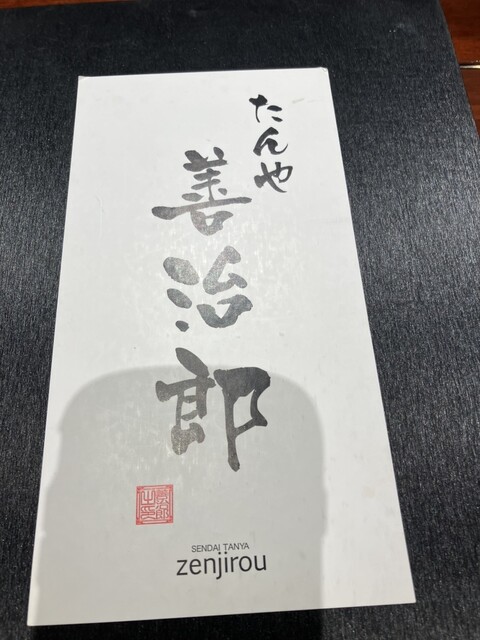 たんや
善治郎
SENDAI TANYA
zenjirou